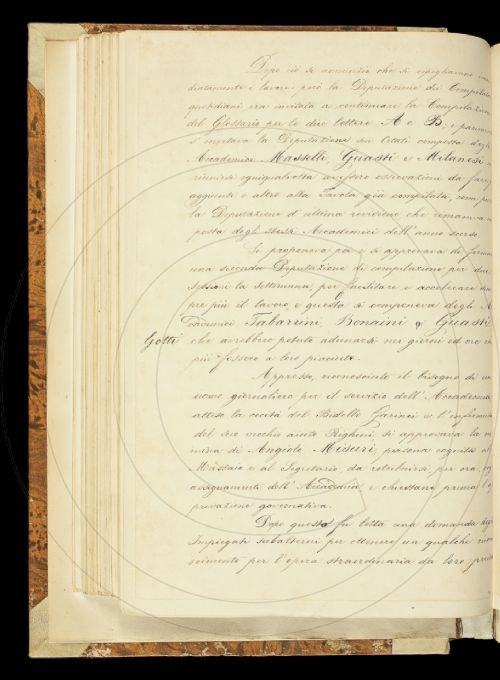 Dopo ciò si annunziò che si ripigliavano
diatamente i lavori: però la Deputazione dei Compilatori
quotidiani era invitata a continuare la Compilazione
del Glossario per le due lettere A e B; e parimente
s'invitava la Deputazione sui Citati composta degli
Accademici Masselli, Guasti e Milanesi a
riunirsi ogniqualvolta avessero osservazioni da fare
aggiunti o altro alla Tavola già compilata, come pure
la Deputazione d'ultima revisione che rimaneva
posta degli stessi Accademici dell'anno scorso.
Si proponeva poi e si approvava di formare
una seconda Deputazione di compilazione per due
sessioni la Settimana per facilitare e accelerare
pre più il lavoro, e questa si componeva degli
cademici Tabarrini, Bonaini e Guasti
Gotti che avrebbero potuto adunarsi nei giorni ed ore
più fossero a loro piaciute.
Appresso, riconosciuto il bisogno di un
uomo giornaliero per il servizio dell'Accademia
attesa la cecità del Bidello Garinei e l'infermità
del suo vecchio aiuto Righini, si approvava la
mina di Angiolo Misuri, persona cognita al
Massaio e al Segretario, da retribuirsi, per ora,
assegnamenti dell'Accademia, e chiestane prima l'ap
provazione governativa.
Dopo questo fu letta una domanda degli
Impiegati subalterni per ottenere un qualche
scimento per l'opera straordinaria da loro